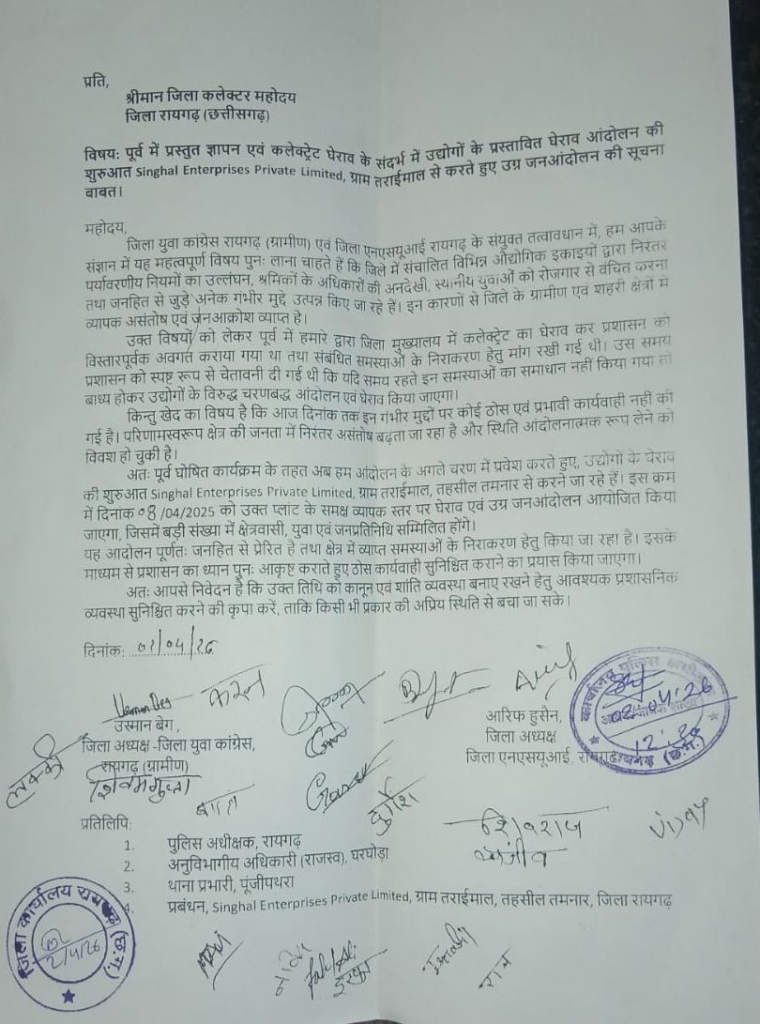 प्रति,
श्रीमान जिला कलेक्टर महोदय
जिला रायगढ़ (छत्तीसगढ़)
विषय: पूर्व में प्रस्तुत ज्ञापन एवं कलेक्ट्रेट घेराव के संदर्भ में उद्योगों के प्रस्तावित घेराव आंदोलन की
शुरुआत Singhal Enterprises Private Limited, ग्राम तराईमाल से करते हुए उग्र जनआंदोलन की सूचना
बाबत।
महोदय,
जिला युवा कांग्रेस रायगढ़ (ग्रामीण) एवं जिला एनएसयूआई रायगढ़ के संयुक्त तत्वावधान में, हम आपके
संज्ञान में यह महत्वपूर्ण विषय पुनः लाना चाहते हैं कि जिले में संचालित विभिन्न औद्योगिक इकाइयों द्वारा निरंतर
पर्यावरणीय नियमों का उल्लंघन, श्रमिकों के अधिकारों की अनदेखी, स्थानीय युवाओं को रोजगार से वंचित करना
तथा जनहित से जुड़े अनेक गंभीर मुद्दे उत्पन्न किए जा रहे हैं। इन कारणों से जिले के ग्रामीण एवं शहरी क्षेत्रों में
व्यापक असंतोष एवं जनआक्रोश व्याप्त है।
उक्त विषयों को लेकर पूर्व में हमारे द्वारा जिला मुख्यालय में कलेक्ट्रेट का घेराव कर प्रशासन को
विस्तारपूर्वक अवगत कराया गया था तथा संबंधित समस्याओं के निराकरण हेतु मांग रखी गई थी। उस समय
प्रशासन को स्पष्ट रूप से चेतावनी दी गई थी कि यदि समय रहते इन समस्याओं का समाधान नहीं किया गया तो
बाध्य होकर उद्योगों के विरुद्ध चरणबद्ध आंदोलन एवं घेराव किया जाएगा।
किन्तु खेद का विषय है कि आज दिनांक तक इन गंभीर मुद्दों पर कोई ठोस एवं प्रभावी कार्यवाही नहीं की
गई है। परिणामस्वरूप क्षेत्र की जनता में निरंतर असंतोष बढ़ता जा रहा है और स्थिति आंदोलनात्मक रूप लेने को
विवश हो चुकी है।
अतः पूर्व घोषित कार्यक्रम के तहत अब हम आंदोलन के अगले चरण में प्रवेश करते हुए, उद्योगों के घेराव
की शुरुआत Singhal Enterprises Private Limited, ग्राम तराईमाल, तहसील तमनार से करने जा रहे हैं। इस क्रम
में दिनांक 08/04/2025 को उक्त प्लांट के समक्ष व्यापक स्तर पर घेराव एवं उग्र जनआंदोलन आयोजित किया
जाएगा, जिसमें बड़ी संख्या में क्षेत्रवासी, युवा एवं जनप्रतिनिधि सम्मिलित होंगे।
यह आंदोलन पूर्णतः जनहित से प्रेरित है तथा क्षेत्र में व्याप्त समस्याओं के निराकरण हेतु किया जा रहा है। इसके
माध्यम से प्रशासन का ध्यान पुनः आकृष्ट कराते हुए ठोस कार्यवाही सुनिश्चित कराने का प्रयास किया जाएगा।
अतः आपसे निवेदन है कि उक्त तिथि को कानून एवं शांति व्यवस्था बनाए रखने हेतु आवश्यक प्रशासनिक
व्यवस्था सुनिश्चित करने की कृपा करें, ताकि किसी भी प्रकार की अप्रिय स्थिति से बचा जा सके।
दिनांक: 02/04/26
करन
उस्मान बेग,
जिला अध्यक्ष -जिला युवा कांग्रेस,
रायगढ़ (ग्रामीण)
लक्की
शिवमगुप्ता
आरिफ हुसैन,
जिला अध्यक्ष
जिला एनएसयूआई, रायगढ़
कार्यालय पुलिस
02.04.26
12:20
रायगढ़ (छ.ग.)
दुर्गेश
शिवराज
संजीव
Vijay
प्रतिलिपि:
1. पुलिस अधीक्षक, रायगढ़
2. अनुविभागीय अधिकारी (राजस्व), घरघोड़ा
3. थाना प्रभारी, पूंजीपथरा
4. प्रबंधन, Singhal Enterprises Private Limited, ग्राम तराईमाल, तहसील तमनार, जिला रायगढ़
जिला कार्यालय रायगढ़ (छ.ग.)
2/4/26
राम